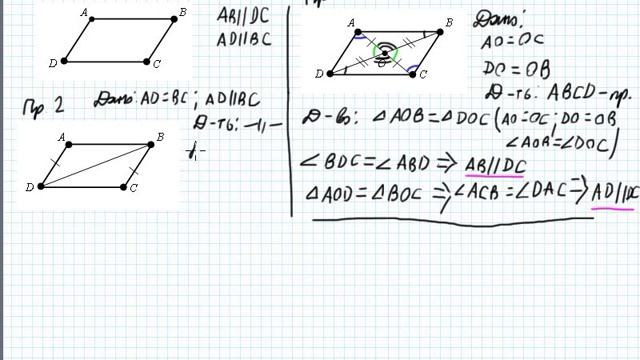 A B
D C
AB//DC
AD//BC
Пр 2 Дано: AD=BC; AD//BC
Д-ть: -//-
A B
D C
A B
O
D C
Дано:
AO=OC
DO=OB
Д-ть: ABCD-пр.
Д-во: △AOB=△DOC (AO=OC; DO=OB
∠AOB=∠DOC)
∠BDC=∠ABD ⇒ AB//DC
△AOD=△BOC ⇒; ∠ACB=∠DAC ⇒ AD//DC